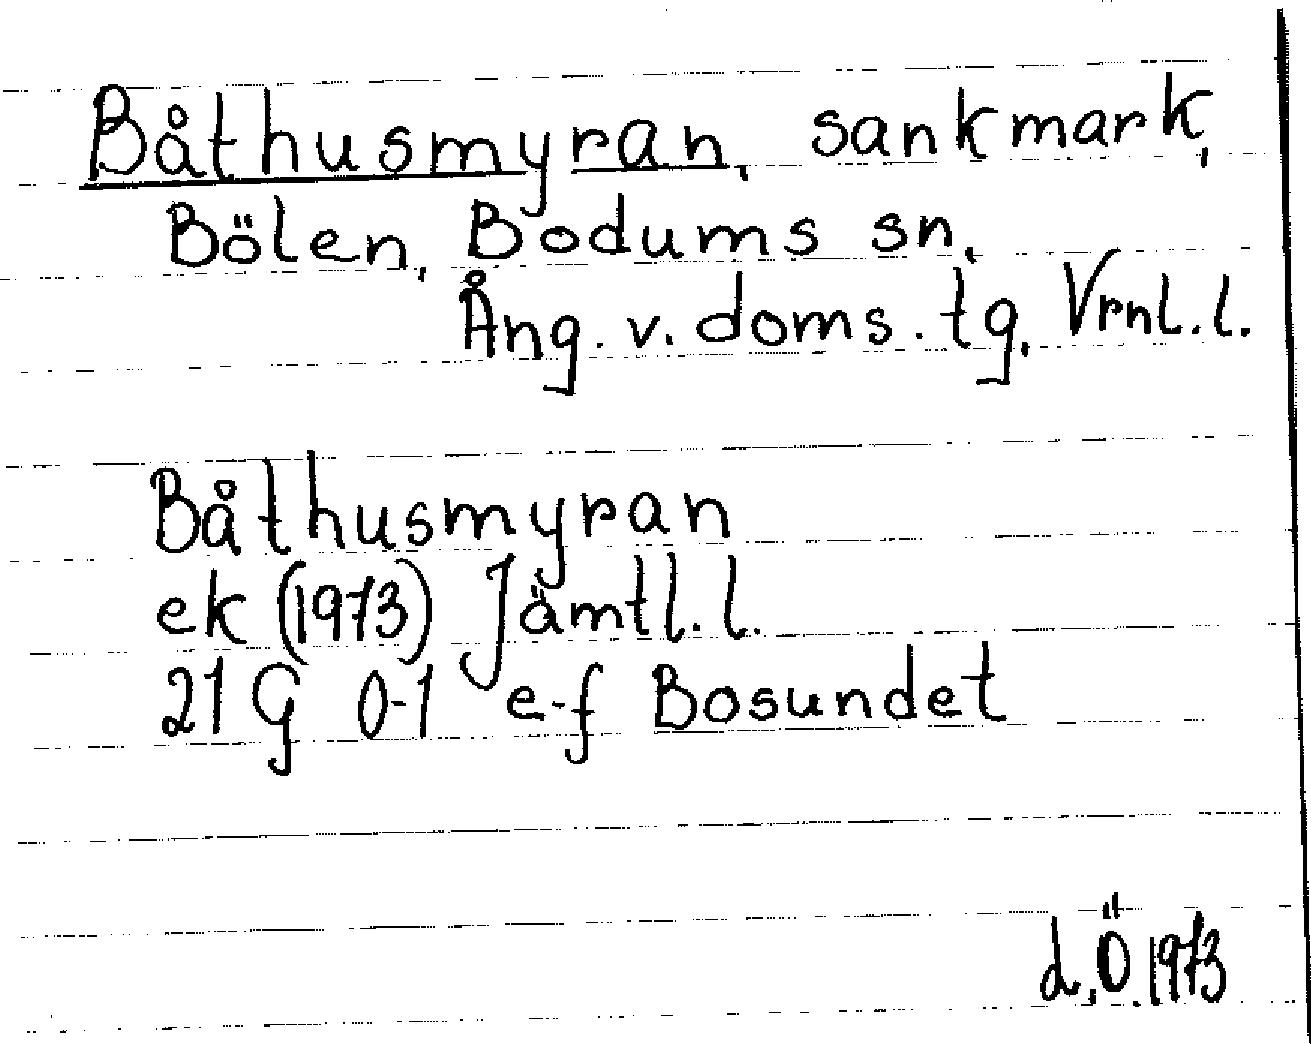 Båthusmyran, sankmark,
Bölen, Bodums sn,
Ång. v. doms. tg, Vrnl. l.
Båthusmyran
ek (1973) Jämtl. l.
21 G 0-1 e-f Bosundet
L.Ö. 1973